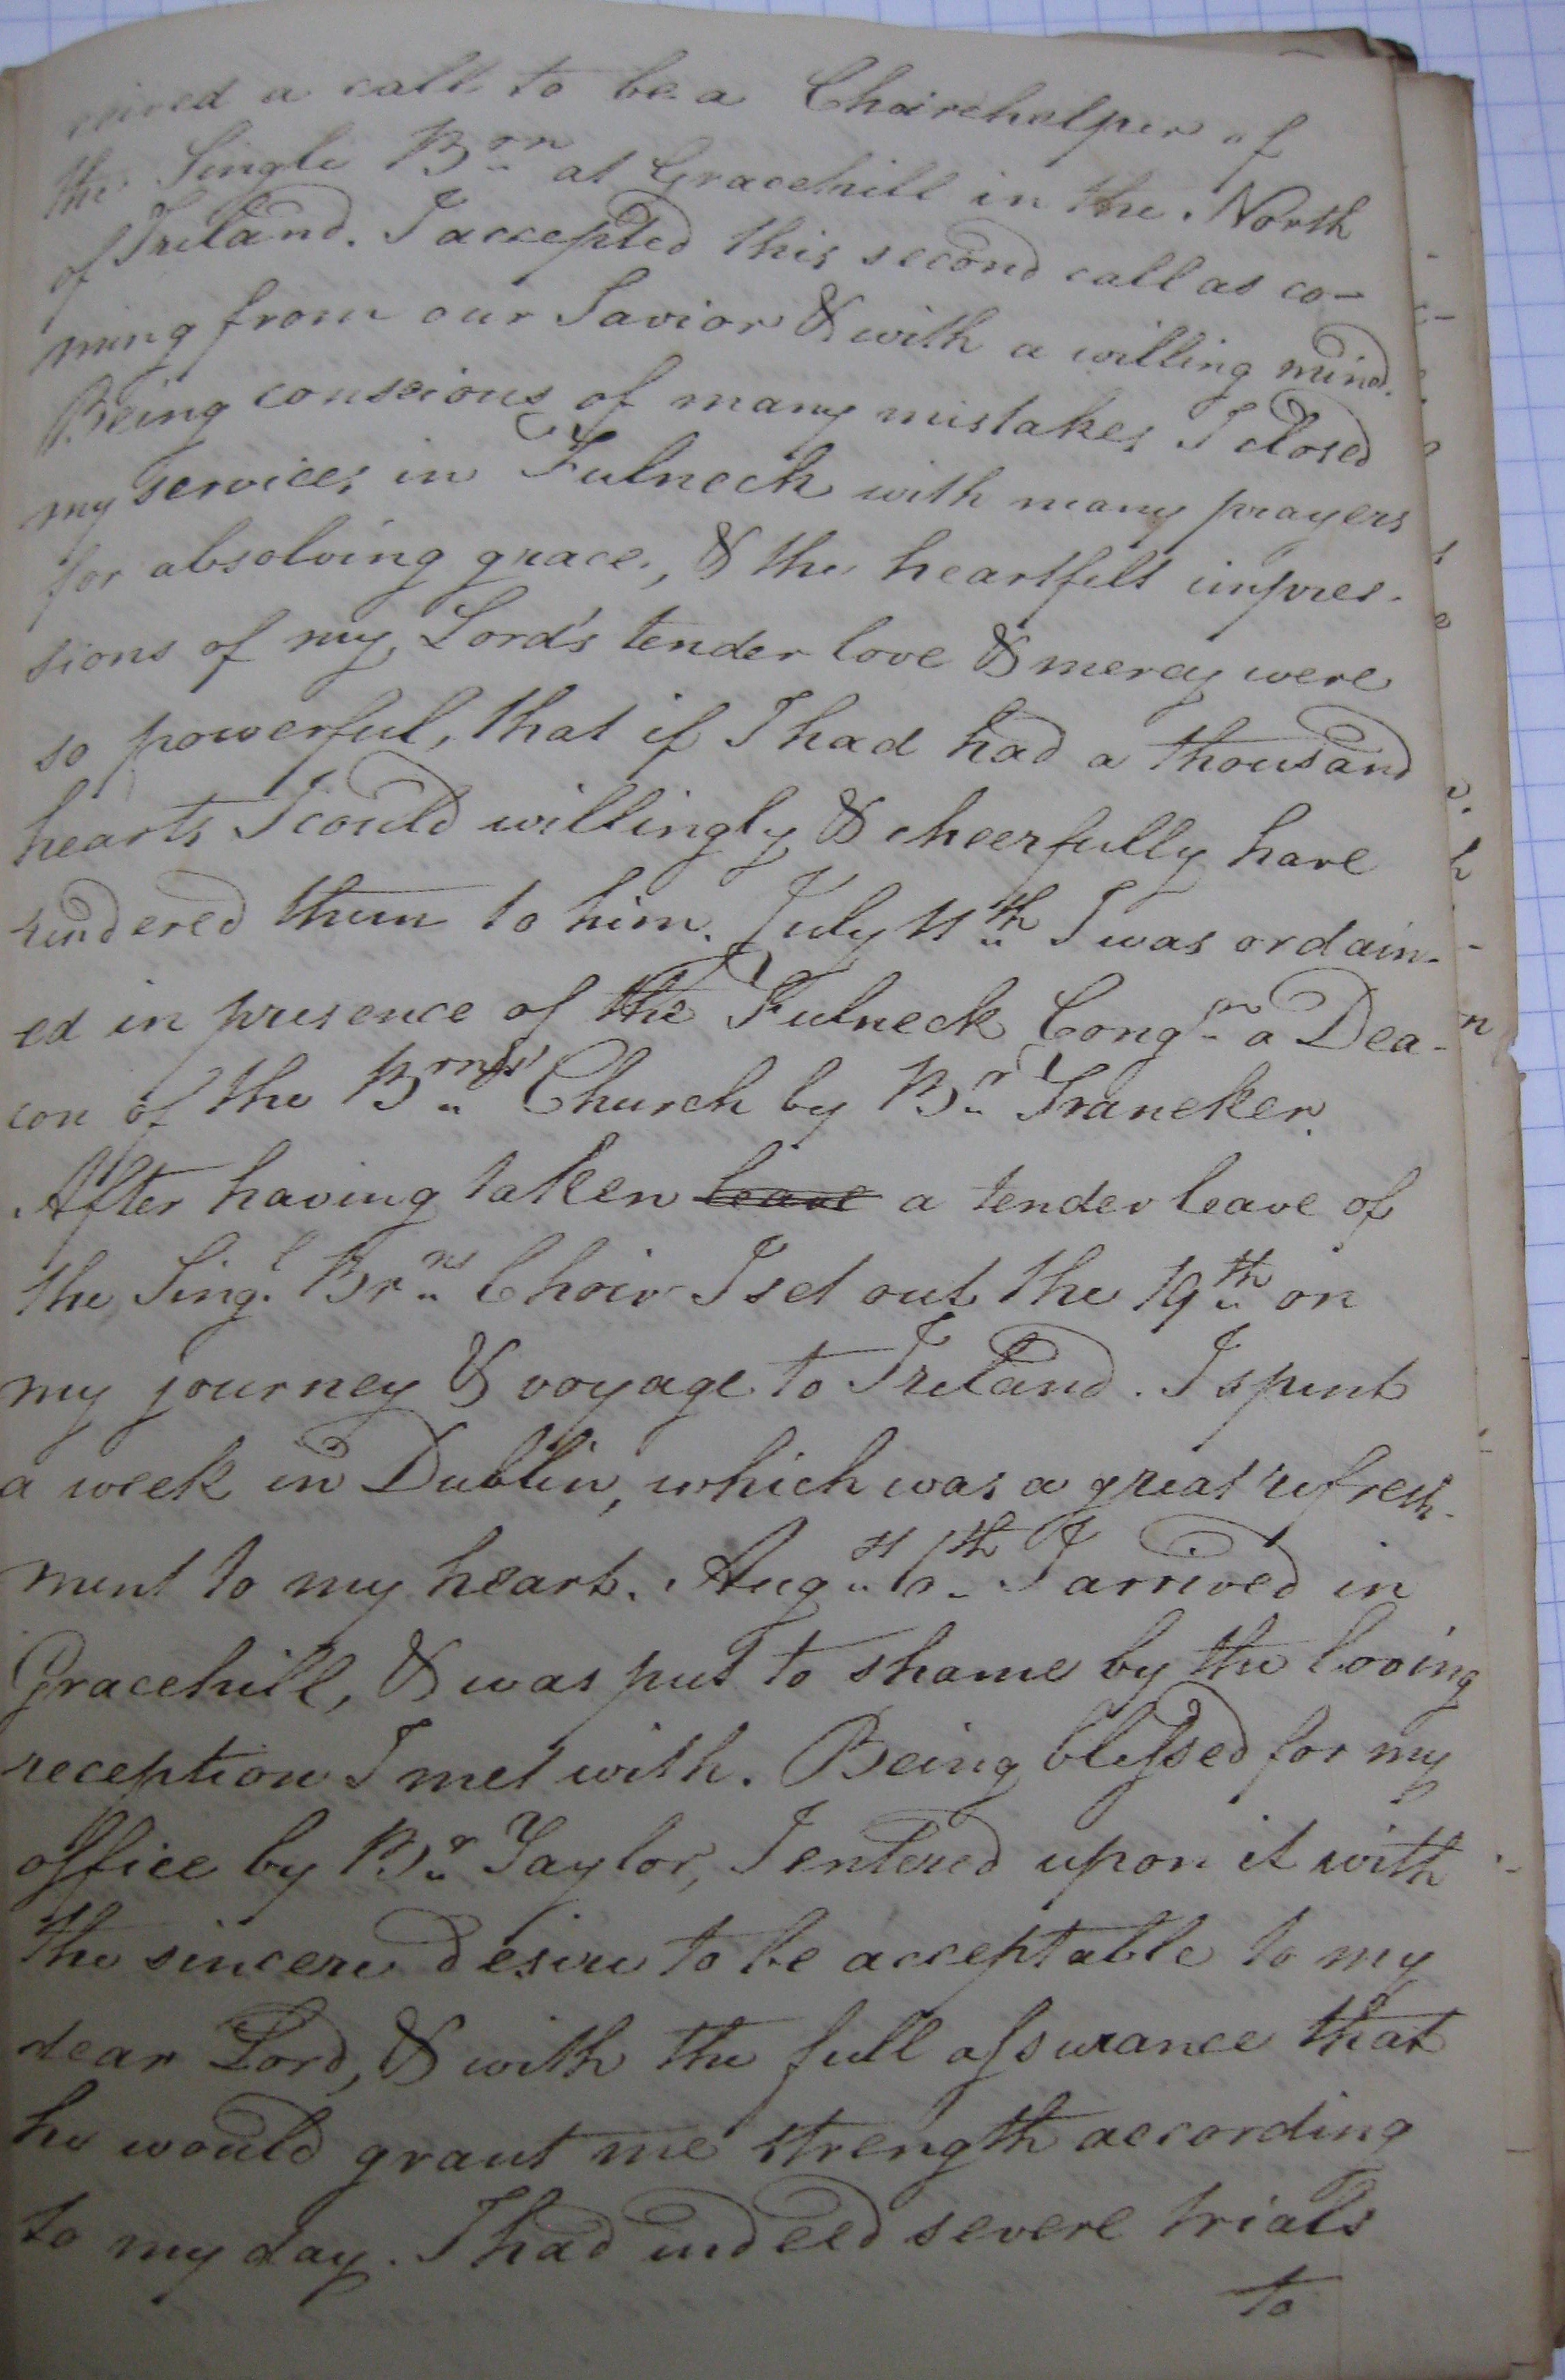 ceived a call to be a Choirhelper of
the Single Brn at Gracehill in the North
of Ireland. I accepted this second call as co-
ming from our Savior & with a willing mind.
Being conscious of many mistakes I closed
my services in Fulneck with many prayers
for absolving grace, & the heartfelt impres-
sions of my Lord's tender love & mercy were
so powerful, that if I had had a thousand
hearts I could willingly & cheerfully have
rendered them to him. July 11th I was ordain-
ed in presence of the Fulneck Congn a Dea-
con of the Brns Church by Br Traneker.
After having taken leave a tender leave of
the Singl Brns Choir I set out the 19th on
my journey & voyage to Ireland. I spent
a week in Dublin, which was a great refresh-
ment to my heart. Augst 6th I arrived in
Gracehill, & was put to shame by the loving
reception I met with. Being blessed for my
office by Br Taylor, I entered upon it with
the sincere desire to be acceptable to my
dear Lord, & with the full assurance that
he would grant me strength according
to my day. I had indeed severe trials
to